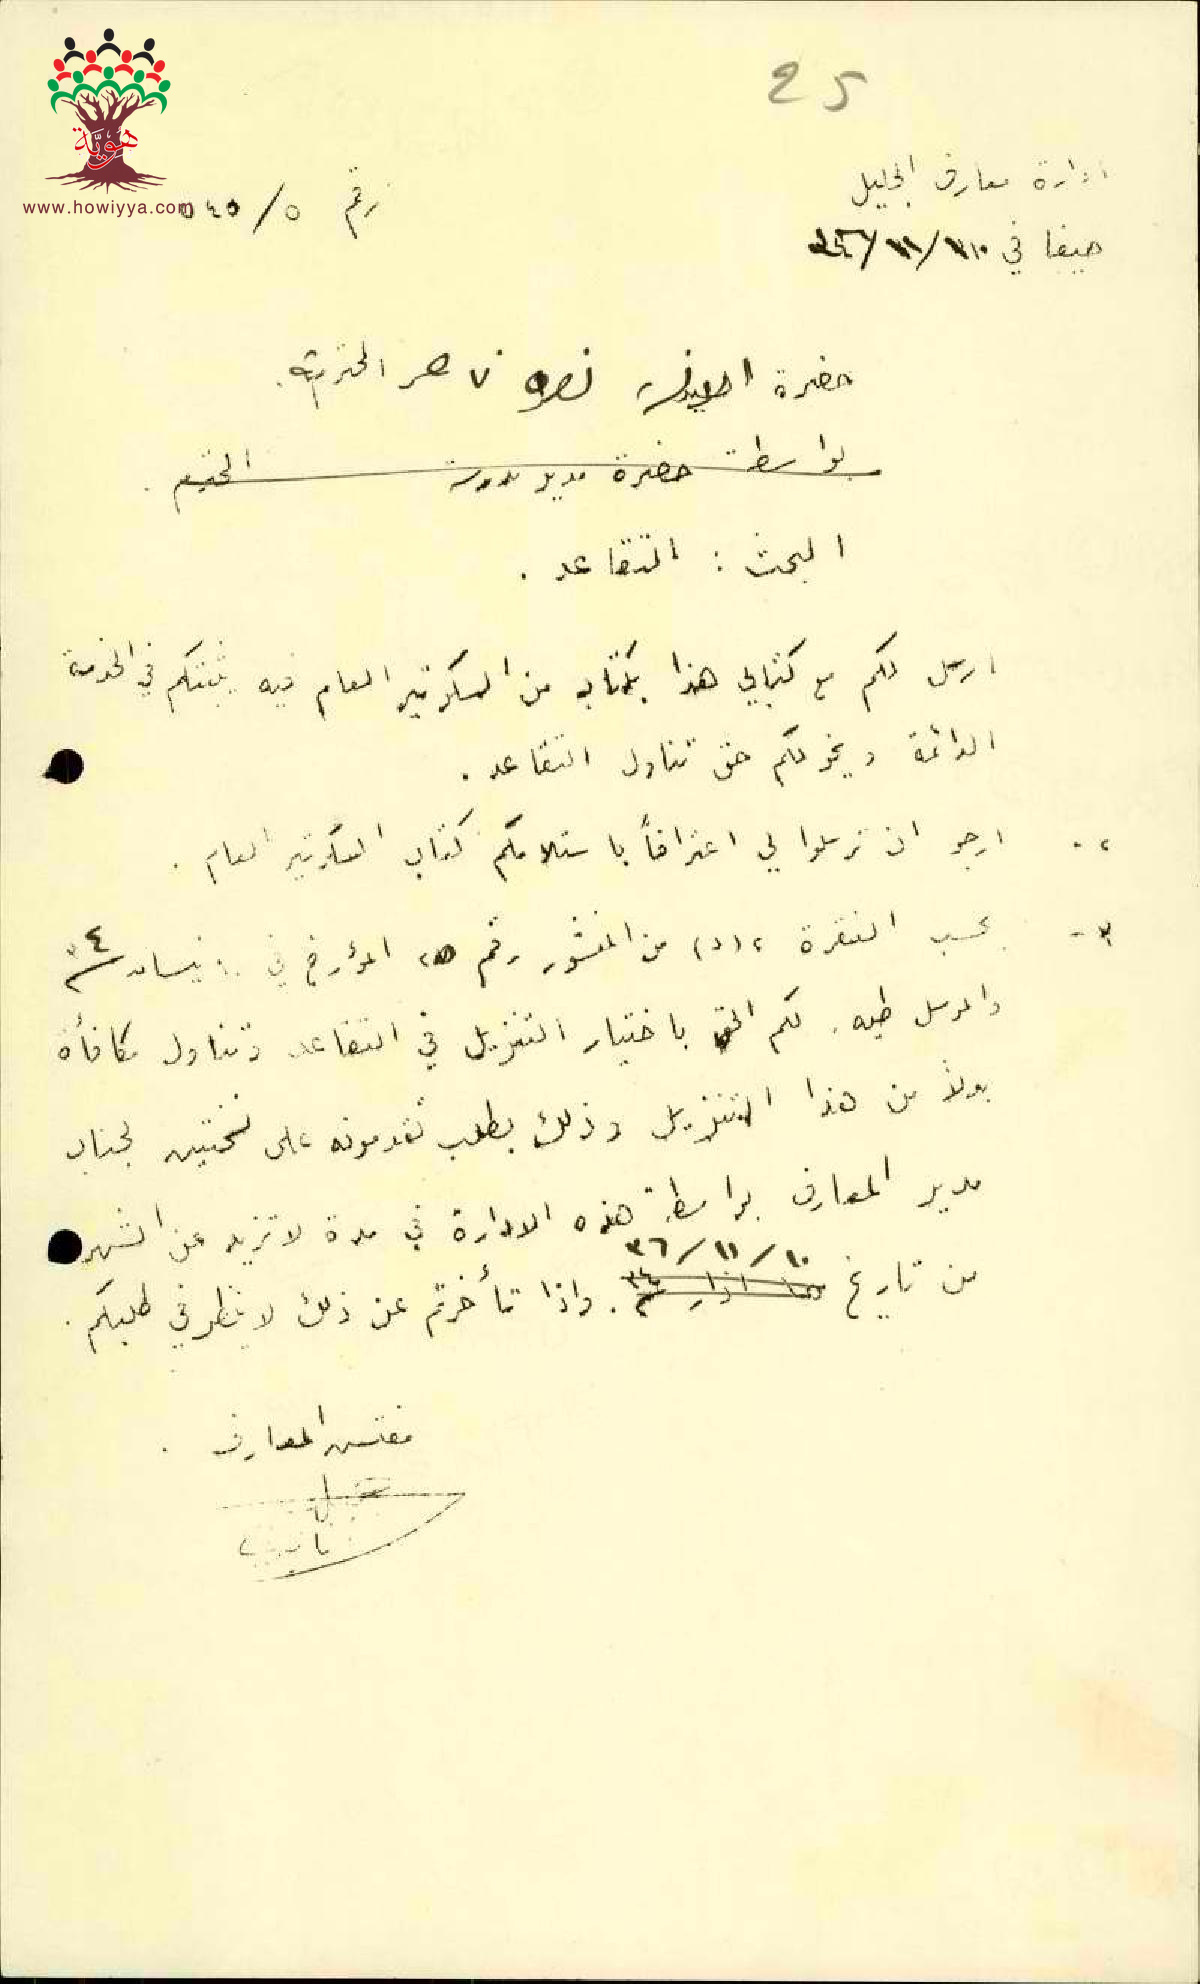 25
هوية
www.howiyya.com
ادارة معارف الجليل
رقم ٥/٥٤٥
حيفا في ١٠/١١/٣٦
حضرة نصر المحترمة.
بواسطة حضرة مدير مدرسة المحترم.
البحث: التقاعد.
ارسل لكم مع كتابي هذا كتاب من السكرتير العام فيه يثبتكم في الخدمة
الدائمة ويخولكم حق تناول التقاعد.
٢. ارجو ان ترسلوا لي اعترافاً باستلامكم كتاب السكرتير العام.
٣- بحسب الفقرة ٢(د) من المنشور رقم المؤرخ في ١٠ نيسان ٣٤
والمرسل طيه. لكم الحق باختيار التنزيل في التقاعد وتناول مكافأة
بدلاً من هذا التنزيل وذلك بطلب تقدمونه على نسختين لجناب
مدير المعارف بواسطة هذه الادارة في مدة لا تزيد عن الشهر
١٠/١١/٣٦
من تاريخ اذار ٣٤. واذا تأخرتم عن ذلك لا ينظر في طلبكم.
مفتش المعارف.